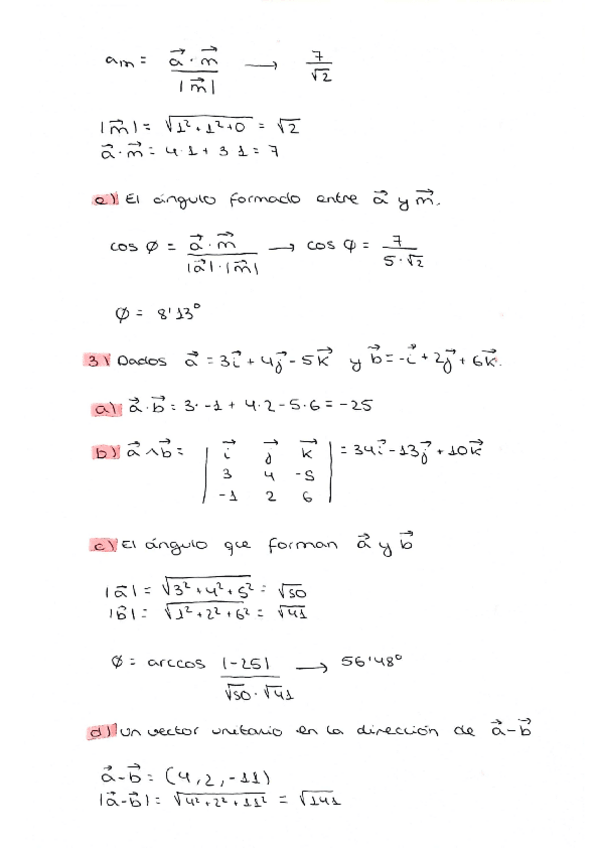 am = a⃗ · m⃗ / |m⃗| → 7/√2
|m⃗| = √1²+1²+0 = √2
a⃗ · m⃗ = 4·1 + 3·1 = 7
e) El ángulo formado entre a⃗ y m⃗.
cos φ = a⃗ · m⃗ / |a⃗|·|m⃗| → cos φ = 7 / 5·√2
φ = 8'13°
3) Dados a⃗ = 3i⃗ + 4j⃗ - 5k⃗ y b⃗ = -i⃗ + 2j⃗ + 6k⃗.
a) a⃗ · b⃗ = 3· -1 + 4·2 - 5·6 = -25
b) a⃗ ∧ b⃗ = | i⃗ j⃗ k⃗ | = 34i⃗ - 13j⃗ + 10k⃗
3 4 -5
-1 2 6
c) El ángulo que forman a⃗ y b⃗
|a⃗| = √3²+4²+5² = √50
|b⃗| = √1²+2²+6² = √41
φ = arccos |-25| / √50 · √41 → 56'48°
d) Un vector unitario en la dirección de a⃗-b⃗
a⃗-b⃗ = (4, 2, -11)
|a⃗-b⃗| = √4²+2²+11² = √141